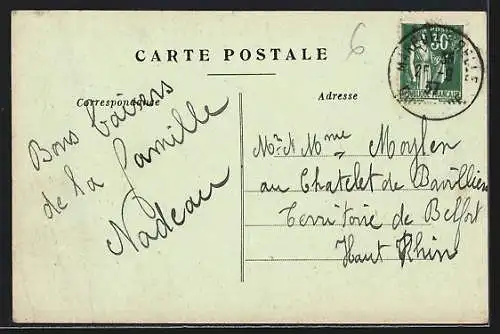 6
30c
RÉPUBLIQUE FRANÇAISE
CARTE POSTALE
Correspondance
Adresse
Bons baisers
de la famille
Nadeau
Mr et Mme Moylen
au Chatelet de Bavilliers
Territoire de Belfort
Haut Rhin